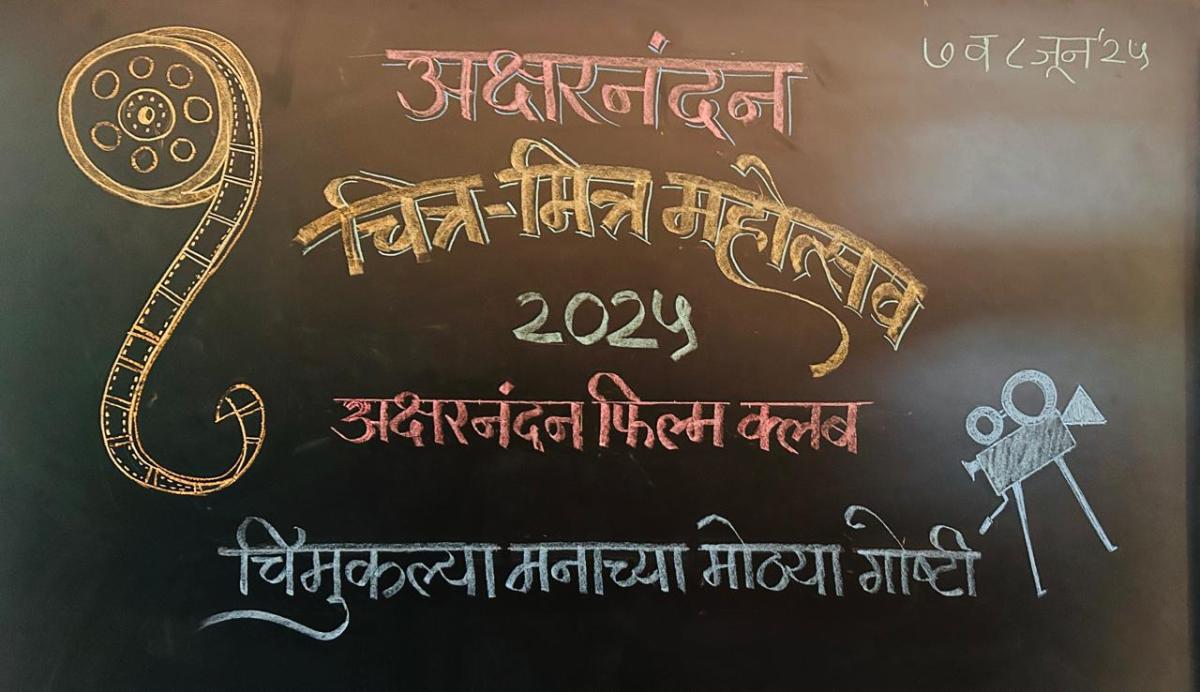 ७ व ८ जून'२५
अक्षरनंदन
चित्र-मित्र महोत्सव
२०२५
अक्षरनंदन फिल्म क्लब
चिमुकल्या मनाच्या मोठ्या गोष्टी